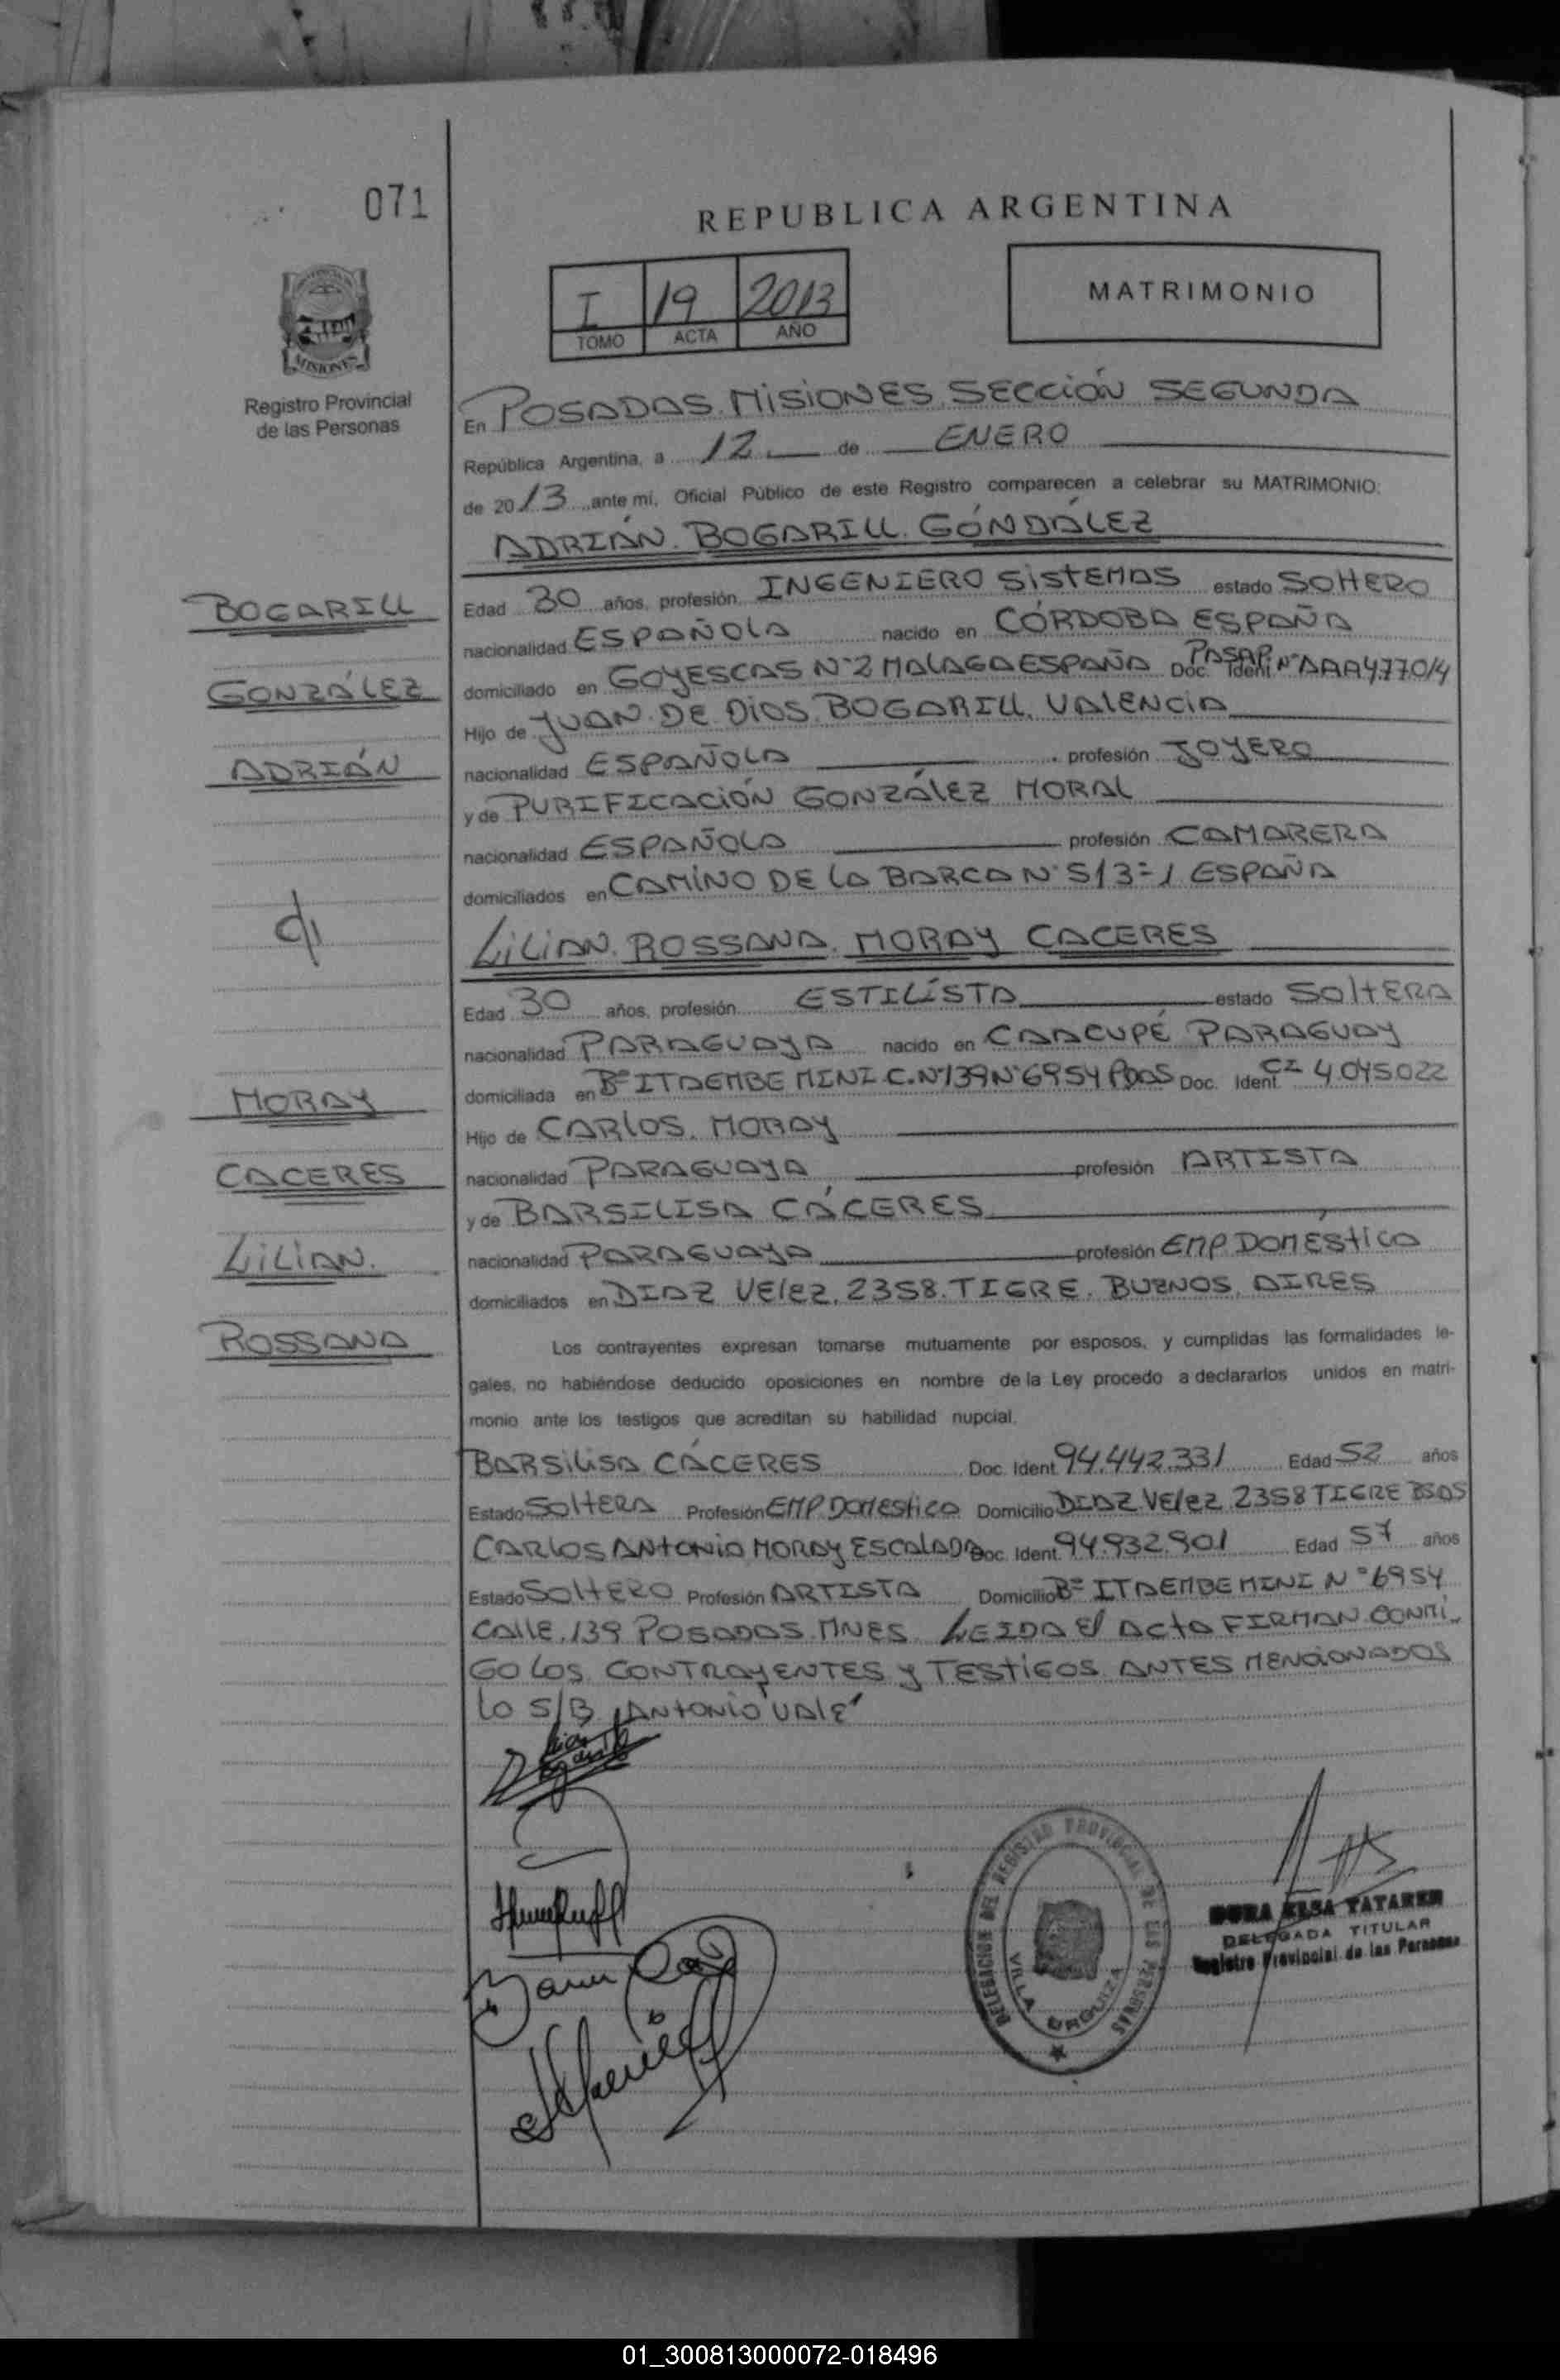 071
REPUBLICA ARGENTINA
I 19 2013
TOMO ACTA AÑO
MATRIMONIO
MISIONES
Registro Provincial
de las Personas
En POSADAS. MISIONES. SECCIÓN SEGUNDA
República Argentina, a 12 de ENERO
de 2013 ante mí, Oficial Público de este Registro comparecen a celebrar su MATRIMONIO:
ADRIÁN. BOGARILL. GÓNDÁLEZ
BOGARILL
Edad 30 años, profesión INGENIERO SISTEMAS estado SOLTERO
nacionalidad ESPAÑOLA nacido en CÓRDOBA ESPAÑA
GONZÁLEZ
domiciliado en GOYESCAS Nº2 MALAGA ESPAÑA Doc. Ident. PASAP. Nº AAA477014
Hijo de JUAN. DE DIOS. BOGARILL. VALENCIA
ADRIÁN
nacionalidad ESPAÑOLA profesión JOYERO
y de PURIFICACIÓN GONZÁLEZ MORAL
nacionalidad ESPAÑOLA profesión CAMARERA
domiciliados en CAMINO DE LA BARCA Nº 5/3=1 ESPAÑA
LILIAN. ROSSANA. MORAY CACERES
Edad 30 años, profesión ESTILÍSTA estado SOLTERA
nacionalidad PARAGUAYA nacido en CAACUPÉ PARAGUAY
MORAY
domiciliada en Bº ITAEMBE MINI C. Nº139 Nº6954 PDAS Doc. Ident. CI 4.045.022
Hijo de CARLOS. MORAY
CACERES
nacionalidad PARAGUAYA profesión ARTISTA
y de BARSILISA CÁCERES
LILIAN.
nacionalidad PARAGUAYA profesión EMP DOMESTICA
domiciliados en DIAZ VELEZ. 2358. TIGRE. BUENOS. AIRES
ROSSANA
Los contrayentes expresan tomarse mutuamente por esposos, y cumplidas las formalidades le-
gales, no habiéndose deducido oposiciones en nombre de la Ley procedo a declararlos unidos en matri-
monio ante los testigos que acreditan su habilidad nupcial.
BARSILISA CÁCERES Doc. Ident. 94.442.331 Edad 52 años
Estado SOLTERA Profesión EMP. DOMESTICA Domicilio DIAZ VELEZ 2358 TIGRE BSAS
CARLOS ANTONIO MORAY ESCALADA Doc. Ident. 94.932.901 Edad 57 años
Estado SOLTERO Profesión ARTISTA Domicilio Bº ITAEMBE MINI Nº6954
CALLE. 139 POSADAS. MNES. LEIDA El ACTA FIRMAN CONMI-
GO LOS. CONTRAYENTES Y TESTIGOS. ANTES MENCIONADOS
LO S/B "ANTONIO" VALE
DELEGACION DEL REGISTRO PROVINCIAL DE LAS PERSONAS
VILLA URQUIZA
ELSA TATAREN
DELEGADA TITULAR
Registro Provincial de las Personas
01_300813000072-018496